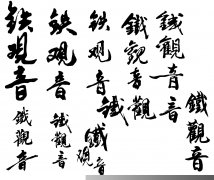 铁观音
铁观音
铁观音
鐵觀音
鐵觀音
鐵觀音
鐵觀音
鐵觀音
鐵观音
鐵觀音